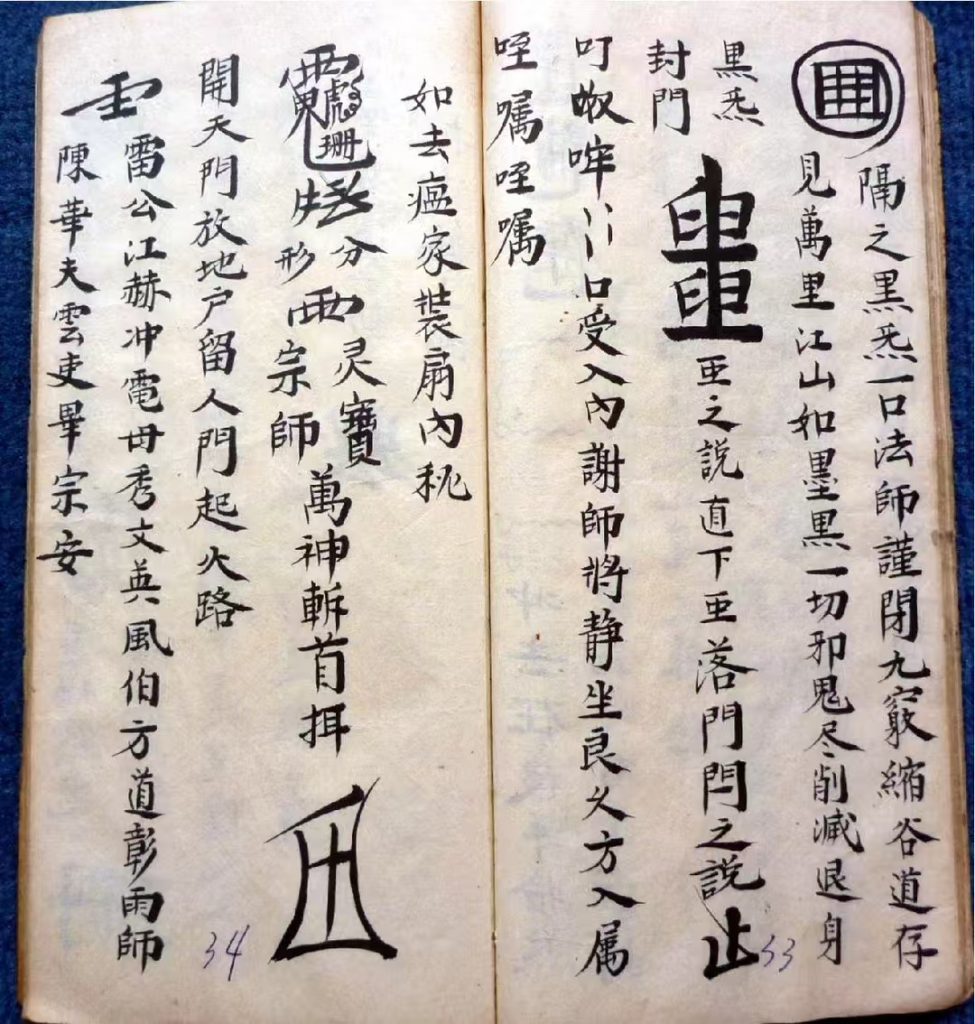 隔之黑炁一口法師謹閉九竅縮谷道存
見萬里江山如墨黑一切邪鬼尽削滅退身
黑炁
亜之説直下亜落門閂之説
封門
叮㕞哰氵氵口受入內謝師將静坐良久方入属
咥嘱咥嘱
33
如去瘟家裝扇內秘
分形
灵寶宗師
萬神斬首掙
開天門放地户留人門起火路
雷公江赫冲電毋秀文英風伯方道彰雨師
陳華夫雲吏畢宗安
34